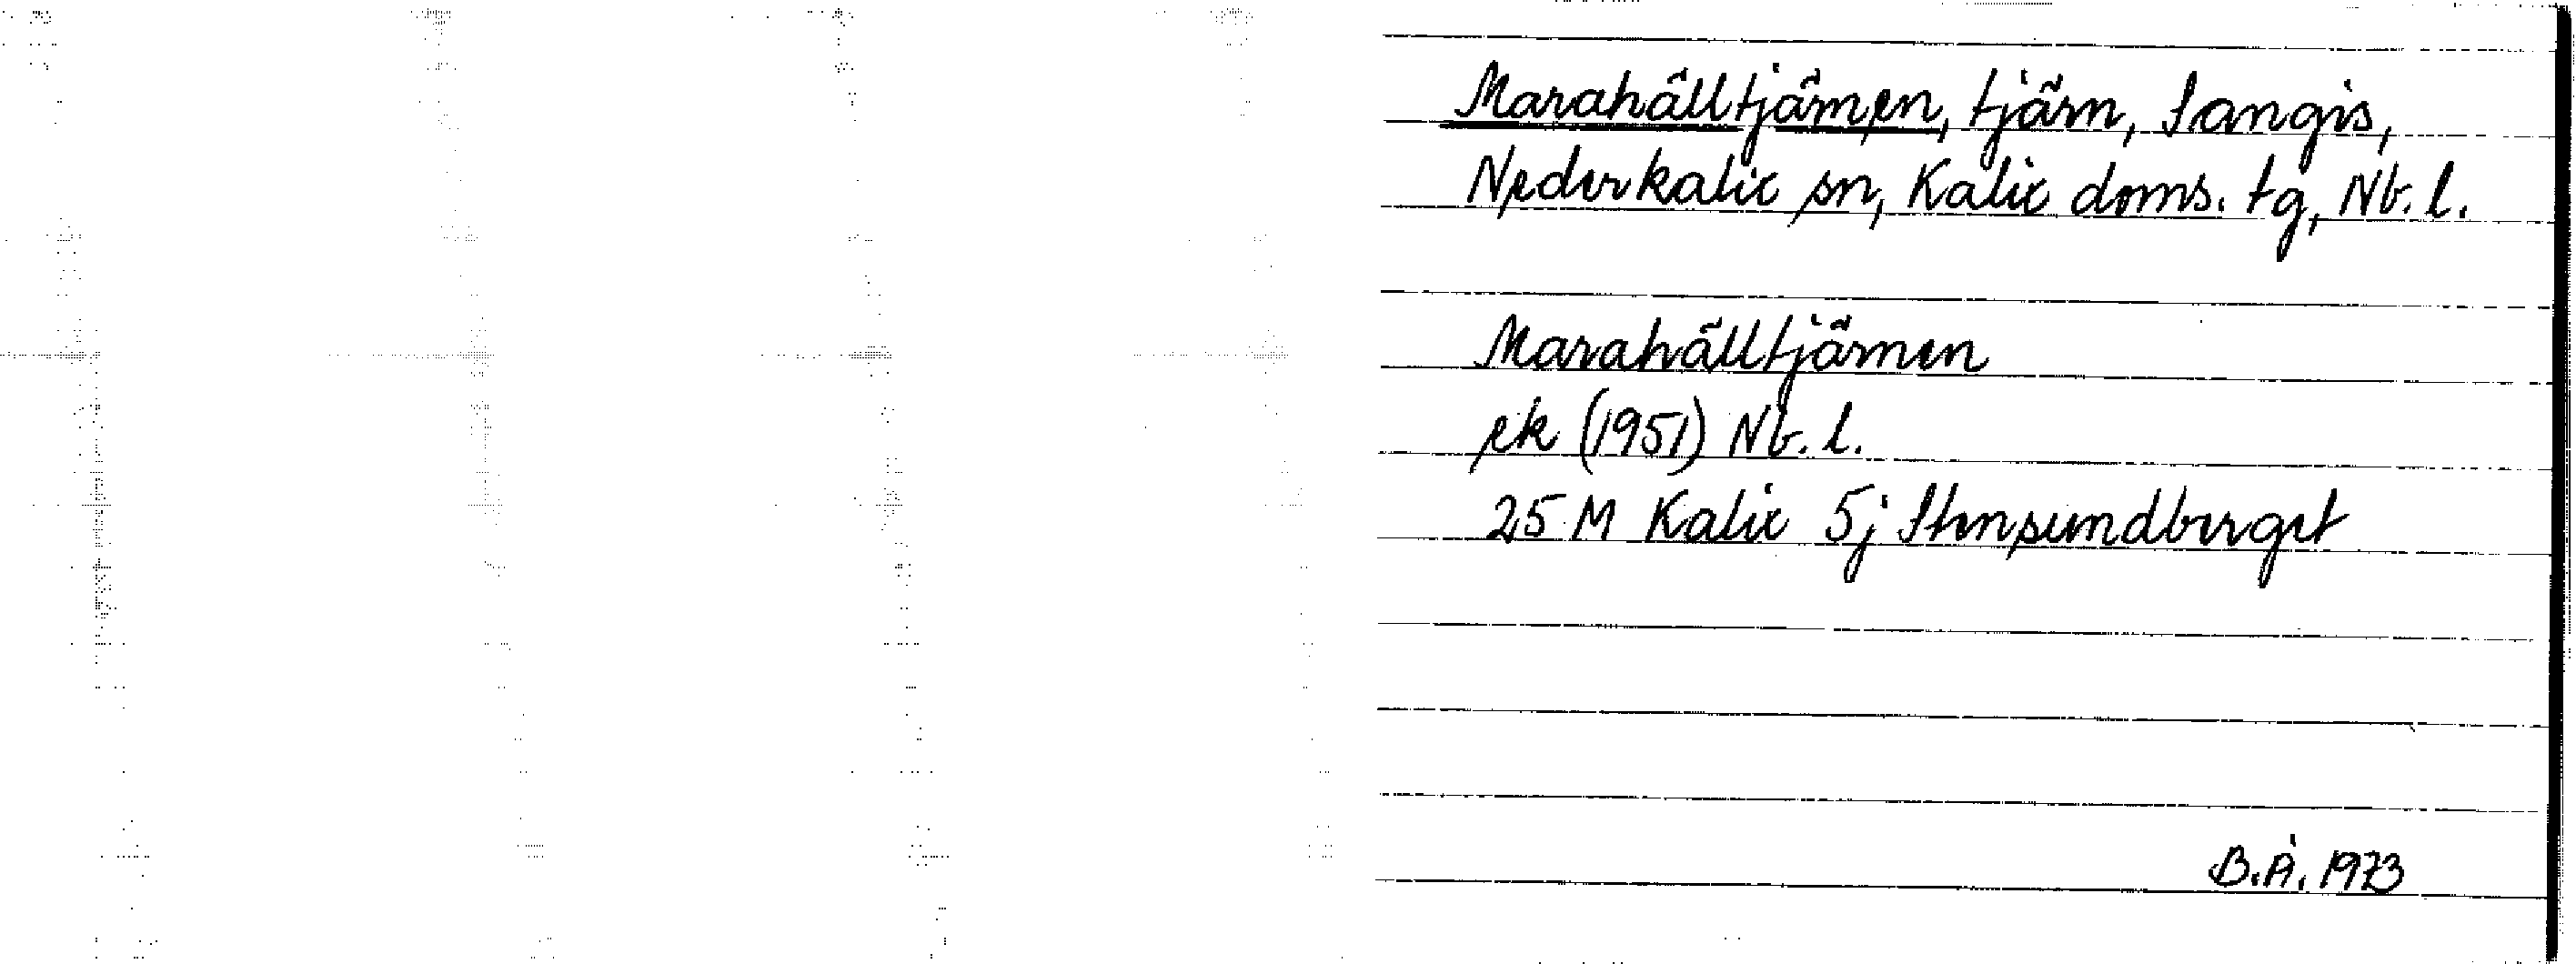 Marahälltjärnen, tjärn, Sangis,
Nederkalix sn, Kalix doms. tg, Nb. l.
Marahälltjärnen
ek (1951) Nb. l.
25 M Kalix 5j Stensundberget
B.Å. 1973